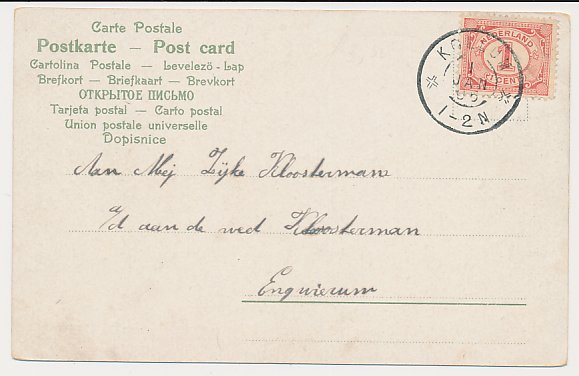 Carte Postale
Postkarte — Post card
Cartolina Postale — Levelező-Lap
Brefkort — Briefkaart — Brevkort
ОТКРЫТОЕ ПИСЬМО
Tarjeta postal — Carto postal
Union postale universelle
Dopisnice
NEDERLAND
1
CENT
1 JAN 06
1-2N
Aan Mej Zijke Kloosterman
a/d aan de wed Kloosterman
Engwierum